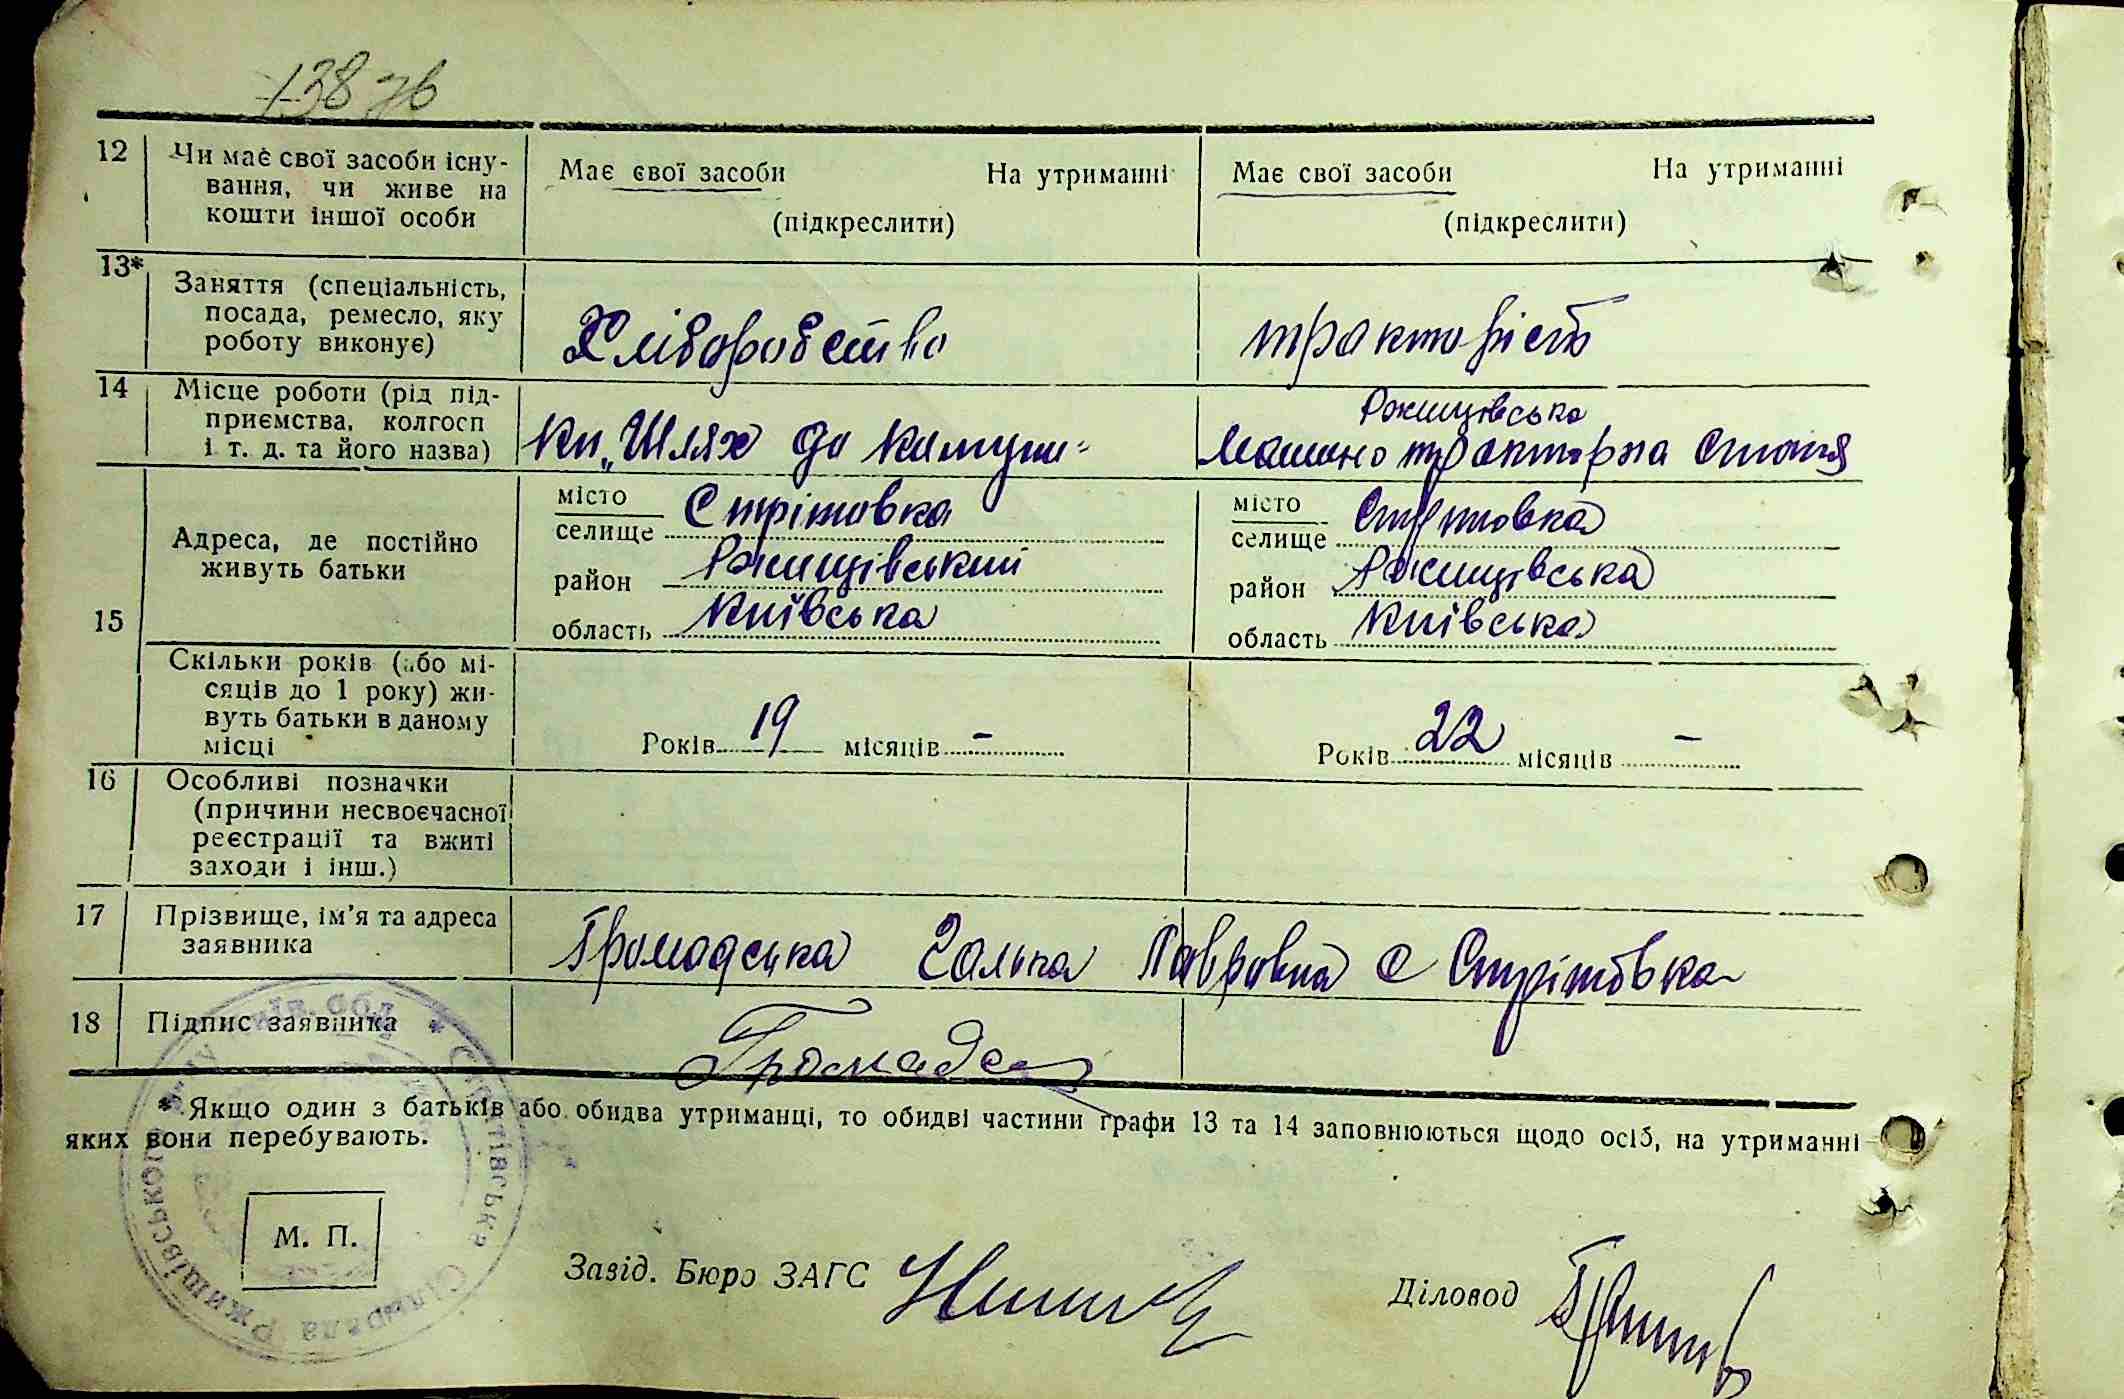 138 зв
12 Чи має свої засоби існу-
вання, чи живе на
кошти іншої особи
Має свої засоби На утриманні
(підкреслити)
Має свої засоби На утриманні
(підкреслити)
13* Заняття (спеціальність,
посада, ремесло, яку
роботу виконує)
Хліборобство
тракторіст
14 Місце роботи (рід під-
приємства, колгосп
і т. д. та його назва)
кп „Шлях до комуни"
Ржищівська
Машино тракторна Станція
15 Адреса, де постійно
живуть батьки
місто
селище Стрітовка
район Ржищівський
область Київська
місто
селище Стрітовка
район Ржищівська
область Київська
Скільки років (або мі-
сяців до 1 року) жи-
вуть батьки в даному
місці
Років 19 місяців -
Років 22 місяців -
16 Особливі позначки
(причини несвоєчасної
реєстрації та вжиті
заходи і інш.)
17 Прізвище, ім'я та адреса
заявника
Громадська Галька Лавровна с Стрітовка
18 Підпис заявника
Громадс
* Якщо один з батьків або обидва утриманці, то обидві частини графи 13 та 14 заповнюються щодо осіб, на утриманні
яких вони перебувають.
М. П.
Завід. Бюро ЗАГС
Діловод
Сільрада Ржищівського